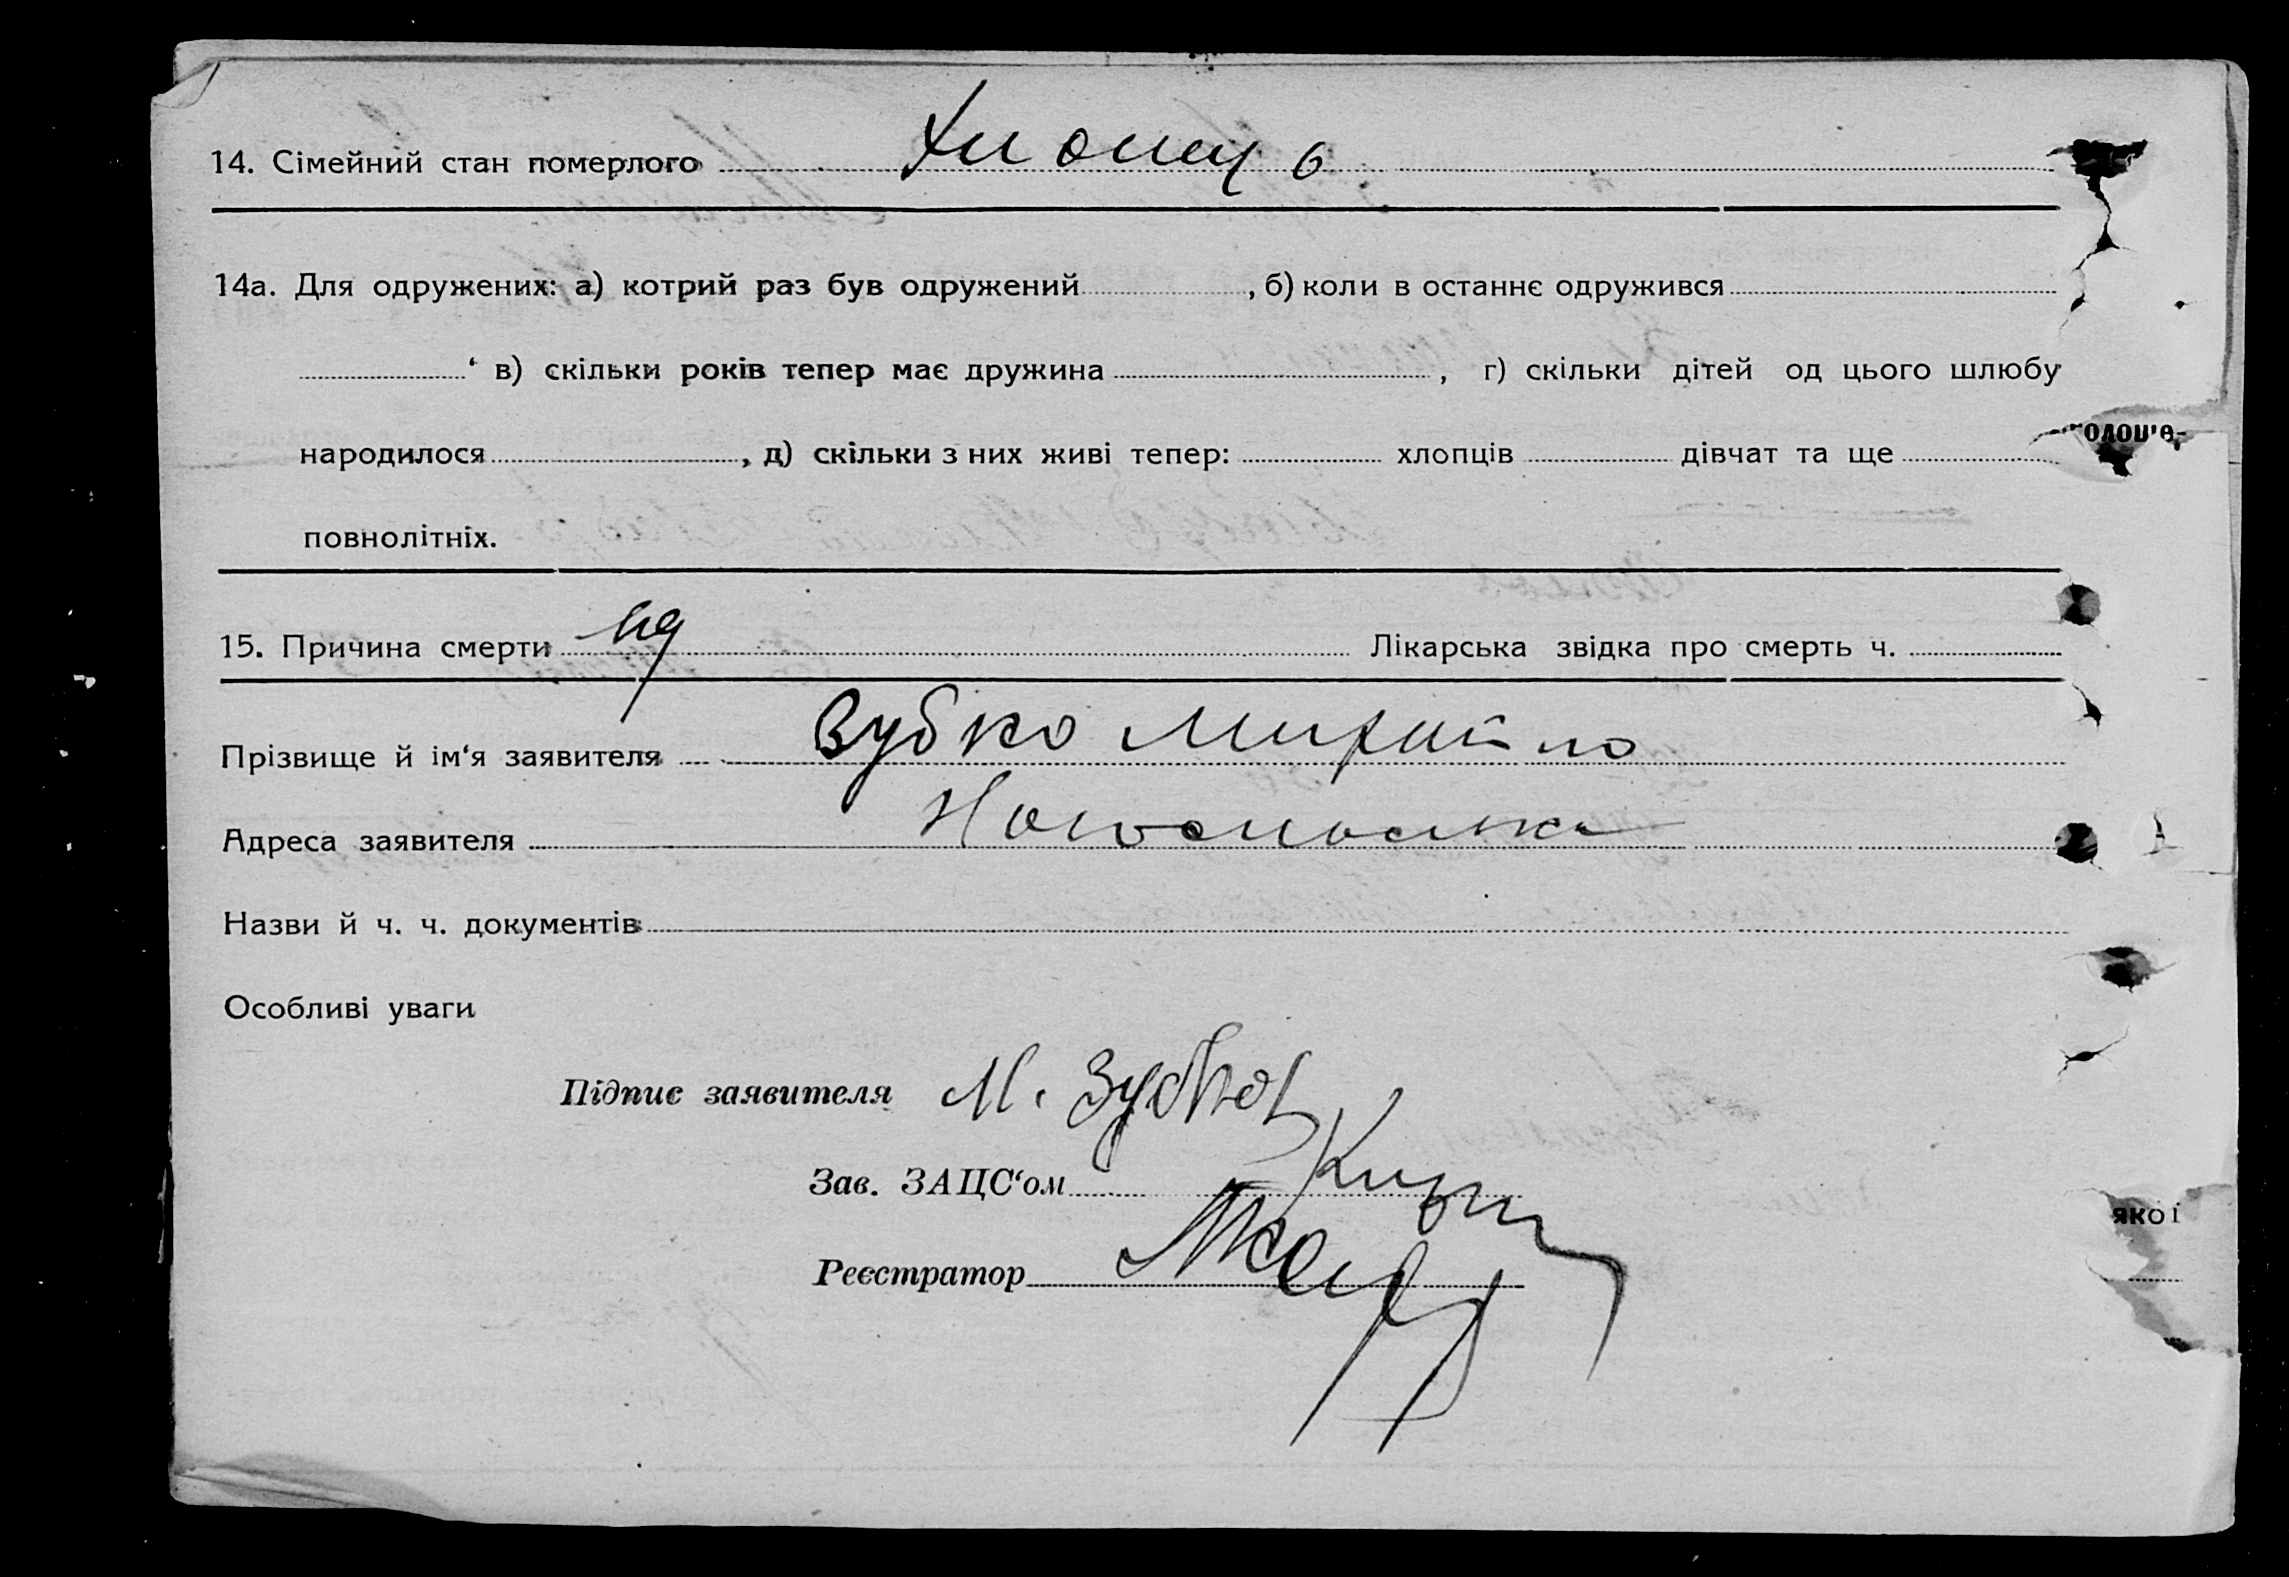 14. Сімейний стан померлого Хлопець
14а. Для одружених: а) котрий раз був одружений , б) коли в останнє одружився
‘ в) скільки років тепер має дружина , г) скільки дітей од цього шлюбу
народилося , д) скільки з них живі тепер: хлопців дівчат та ще
повнолітніх.
15. Причина смерти Лікарська звідка про смерть ч.
Прізвище й ім‘я заявителя Зубко Михайло
Адреса заявителя
Назви й ч. ч. документів
Особливі уваги
Підпис заявителя М. Зубко
Зав. ЗАЦС‘ом
Реєстратор
якої